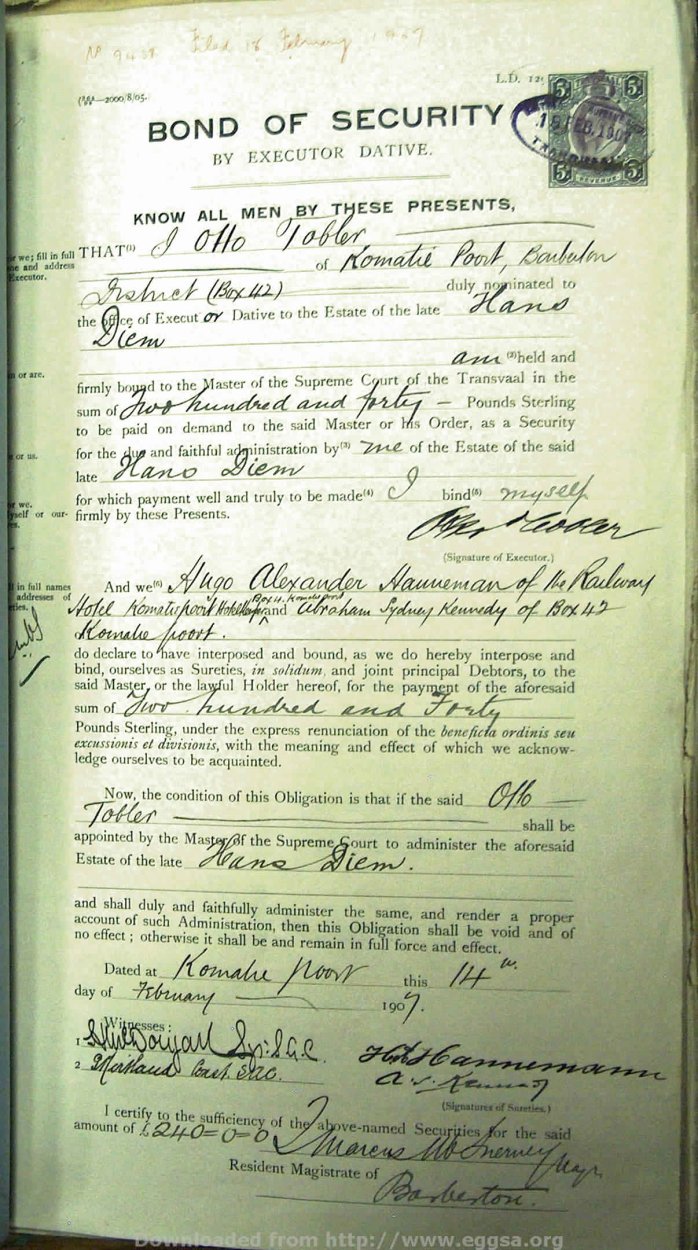 Filed 18 February 1907
L.D. 12
—2000/8/05.
BOND OF SECURITY
BY EXECUTOR DATIVE.
18 FEB. 1907
REVENUE
KNOW ALL MEN BY THESE PRESENTS,
we; fill in full
and address
Executor.
THAT(1) I Otto Tobler
of Komatie Poort, Barberton
District (Box 42) duly nominated to
the office of Execut or Dative to the Estate of the late Hans
Diem
or are.
am (2)held and
firmly bound to the Master of the Supreme Court of the Transvaal in the
sum of Two hundred and forty — Pounds Sterling
to be paid on demand to the said Master or his Order, as a Security
or us.
for the due and faithful administration by(3) me of the Estate of the said
late Hans Diem
or we.
for which payment well and truly to be made(4) I bind(5) myself
yself or our-
firmly by these Presents.
Otto Tobler
(Signature of Executor.)
in full names
addresses of
And we(6) Hugo Alexander Hanneman of the Railway
Box 4. Komatie poort
Hotel Komatiepoort Hotelkeeper and Abraham Sydney Kennedy of Box 42
Komatie poort.
do declare to have interposed and bound, as we do hereby interpose and
bind, ourselves as Sureties, in solidum, and joint principal Debtors, to the
said Master, or the lawful Holder hereof, for the payment of the aforesaid
sum of Two hundred and Forty
Pounds Sterling, under the express renunciation of the beneficia ordinis seu
excussionis et divisionis, with the meaning and effect of which we acknow-
ledge ourselves to be acquainted.
Now, the condition of this Obligation is that if the said Otto —
Tobler — shall be
appointed by the Master of the Supreme Court to administer the aforesaid
Estate of the late Hans Diem.
and shall duly and faithfully administer the same, and render a proper
account of such Administration, then this Obligation shall be void and of
no effect; otherwise it shall be and remain in full force and effect.
Dated at Komatie Poort this 14th.
day of February — 1907.
Witnesses:
1
2
H A Hannemann
A. S. Kennedy
(Signatures of Sureties.)
I certify to the sufficiency of the above-named Securities for the said
amount of £240=0=0
Resident Magistrate of
Barberton.
Downloaded from http://www.eggsa.org